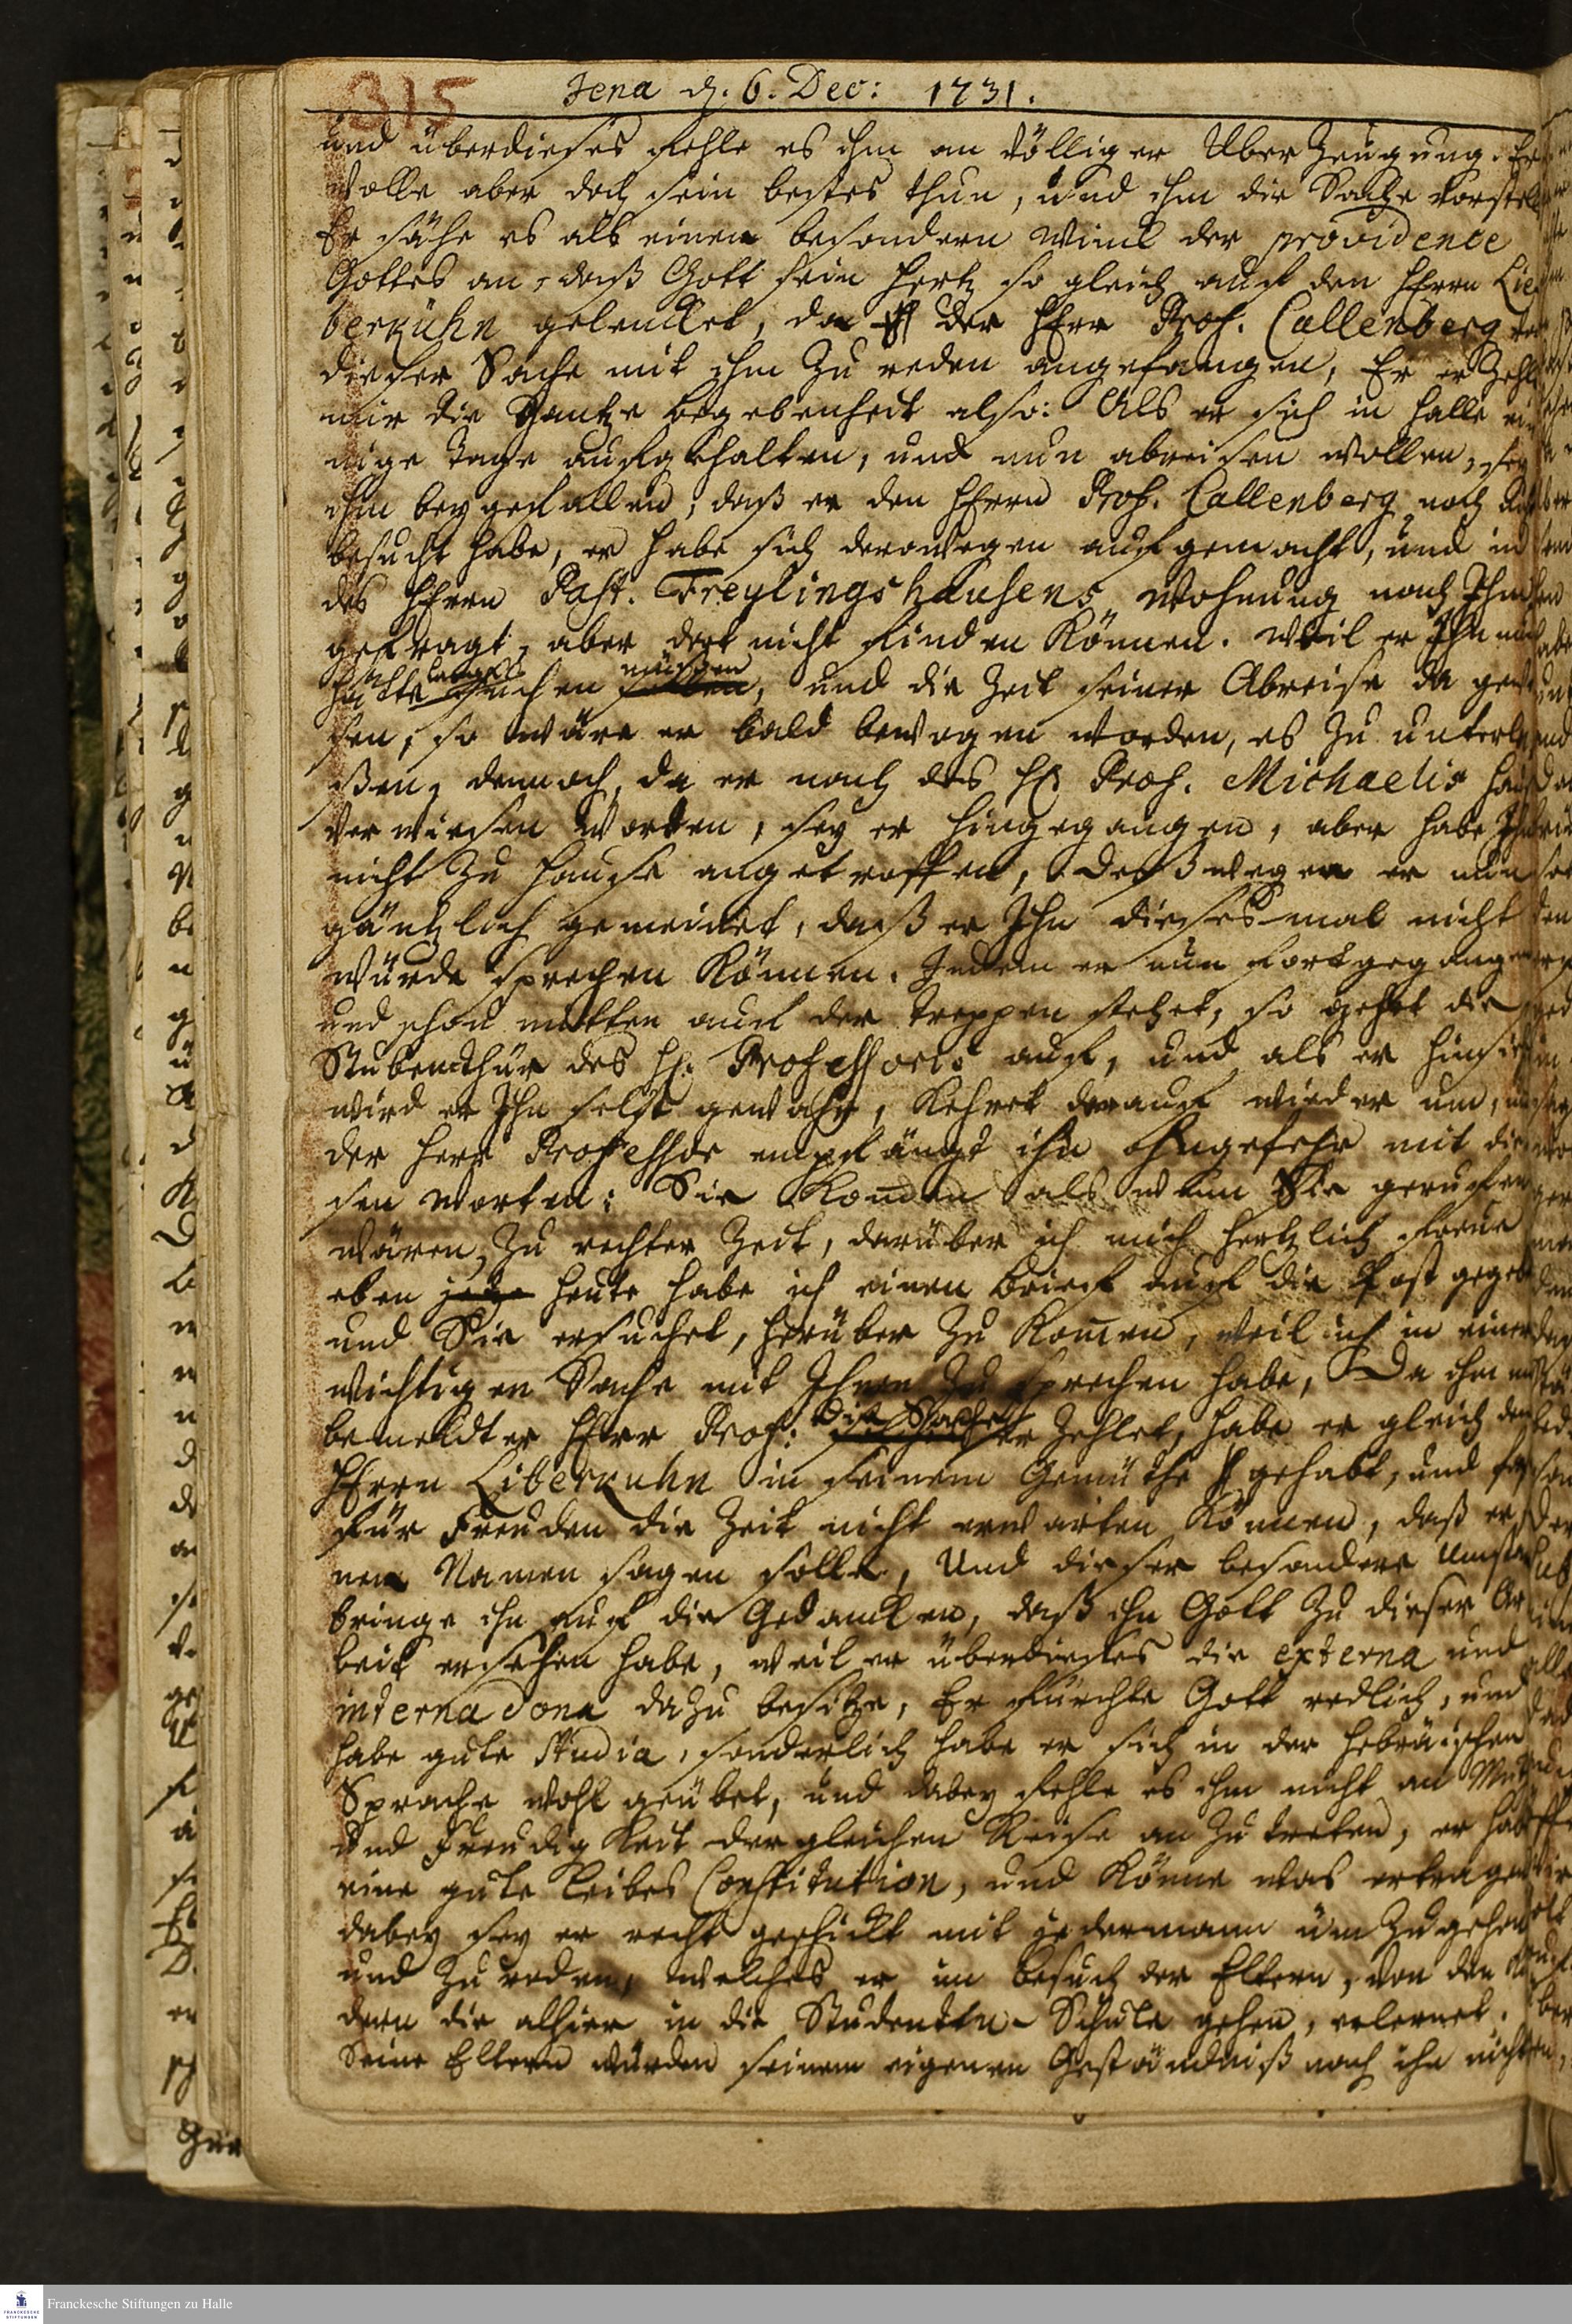 315 Jena d. 6. Dec: 1731.
und überdieses fehle es ihm an völliger Uber Zeugung. Er
wolle aber doch sein bestes thun, und ihm die Sache vorstel
Er sähe es als einen besondern Winck der providence
Gottes an, daß Gott sein Hertz so gleich auf den HErrn Lie
berkühn gelencket, da der HErr Prof. Callenberg von
dieser Sache mit ihm zu reden angefangen, Er erzehl
mir die Gantze begebenheit also: Als er sich in Halle ei
nige Tage aufgehalten, und nun abreisen wollen, sey
ihm beygefallen, daß er den HErrn Prof. Callenberg noch
besucht habe, er habe sich derowegen aufgemacht, und in
des HErrn Past. Freylingshausens Wohnung nach Ihm
gefragt, aber dort nicht finden Können. Weil er Ihn
hätte länger suchen müssen, und die Zeit seiner Abreise da gewe
sen, so wäre er bald bewogen worden, es zu unterla
ßen, dennoch, da er nach des H. Prof. Michaelis Hauß
verwiesen worden, sey er hingegangen, aber habe Ihn
nicht zu Hause angetroffen, Deßwegen er nun
gäntzlich gemeinet, daß er Ihn dieses mal nicht
würde sprechen Können. Indem er nun fortgegangen
und schon mitten auf der Treppen stehet, so gehet die
Stubenthür des H. Professoris auf, und als er hinsiehet
wird er Ihn selbst gewahr, Kehret darauf wieder um,
der Herr Professor empfängt ihn ohngefehr mit die
sen Worten: Sie Kommen als wenn Sie geruffen
wären, zu rechter Zeit, darüber ich mich hertzlich freue
eben jetzo heute habe ich einen brieff auf die Post gegeben
und Sie ersuchet, herüber zu Komen, weil ich in einer
wichtigen Sache mit Ihnen zu sprechen habe, Da ihm nun
bemeldter HErr Prof: die Sache erzehlet, habe er gleich den
HErrn Liberkuhn in seinem Gemüthe gehabt, und
für Freuden die Zeit nicht erwarten Können, daß er
nen Namen sagen solle, Und dieser besondere Umstan
bringe ihn auf die Gedancken, daß ihn Gott zu dieser Ar
beit ersehen habe, weil er überdieses die externa und
interna dona dazu besitze, Er fürchte Gott redlich, und
habe gute Studia, sonderlich habe er sich in der Hebräischen
Sprache wohl geübet, und dabey fehle es ihm nicht an Muth
und Freudigkeit dergleichen Reise anzutreten, er habe
eine gute Leibes Constitution, und Könne was ertragen
dabey sey er recht geschickt mit jedermann umzugehen
und zu reden, welches er im besuch der Eltern, von den Kin
dern die alhier in die Studenten-Schule gehen, erlernet.
Seine Eltern würden seinem eigenen Geständniß nach ihn nicht
Franckesche Stiftungen zu Halle